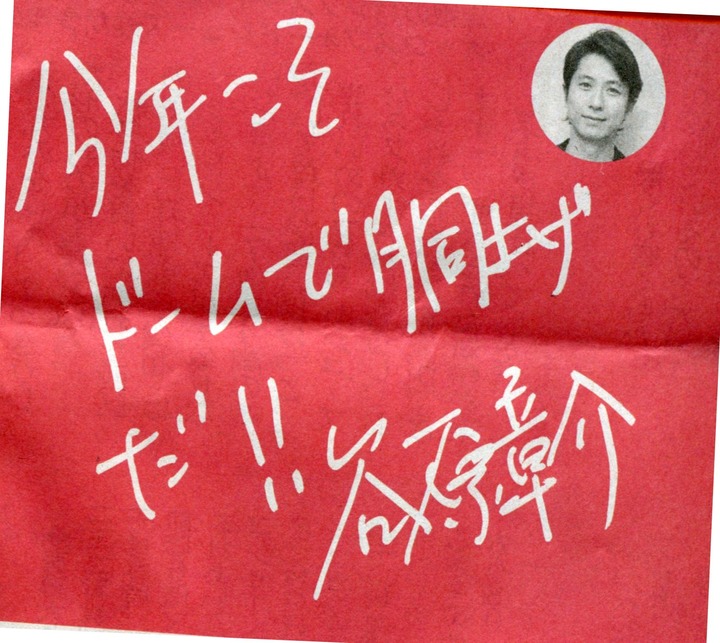 今年こそ
ドームで胴上げ
だ!! 谷原章介